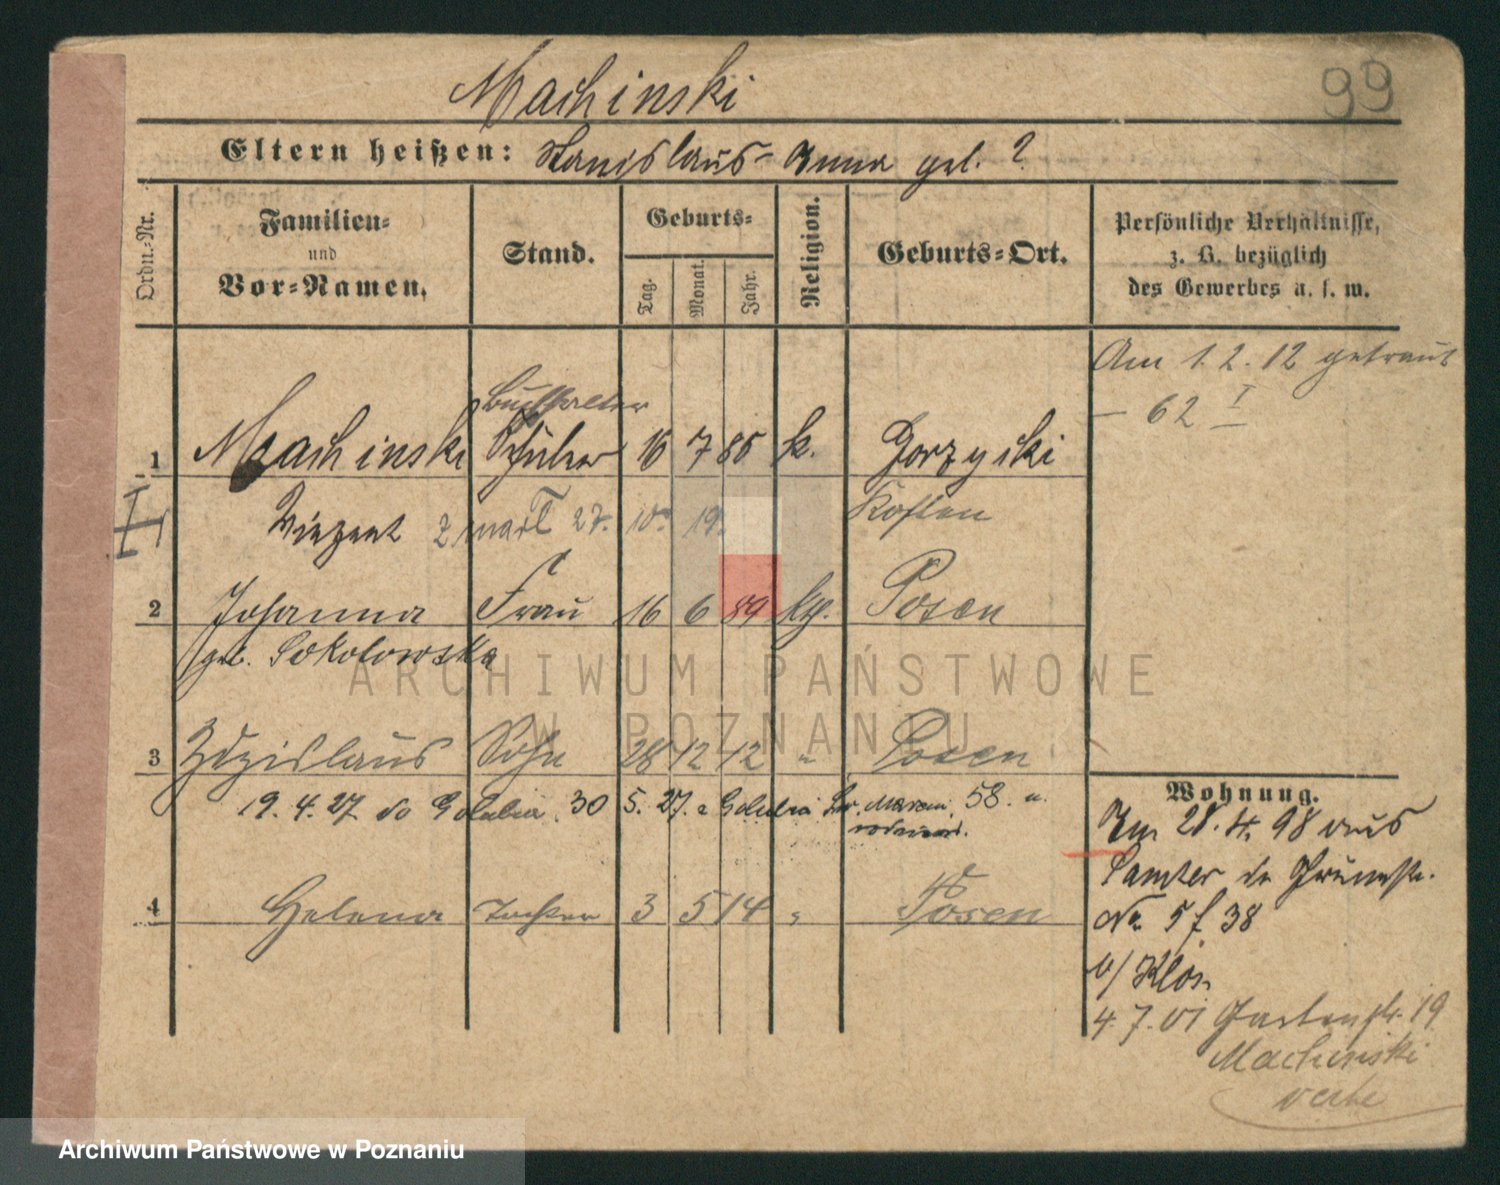 Machinski
99
Eltern heißen: Stanislaus - Anna geb. ?
Ordn.-Nr.
Familien-
und
Vor-Namen.
Stand.
Geburts-
Tag.
Monat.
Jahr.
Religion.
Geburts-Ort.
Persönliche Verhältnisse,
z. B. bezüglich
des Gewerbes u. s. w.
Am 1. 2. 12 getraut
— 62 I
Buchhalter
1 Machinski Schüler 16 7 86 k. Gorzyski
Vinzent 27. 10. 19. Kosten
2 Johanna Frau 16 6 89 Posen
geb. Sokolowska
3 Zdzislaus Sohn 28 12 12 " Posen
19. 4. 27. do 30 5. 27. 58.
4 Helena Tochter 3 5 14 " Posen
Wohnung.
Am 28. 4. 98 aus
Samter
No 5 f 38
b/ Klos
4. 7. 01 Gartenstr. 19
Machinski
ARCHIWUM PAŃSTWOWE
W POZNANIU
Archiwum Państwowe w Poznaniu